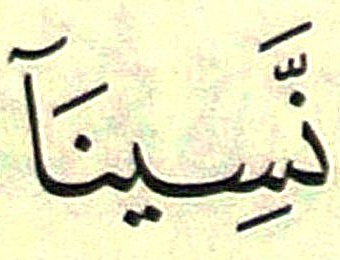 نَّسِينَآ